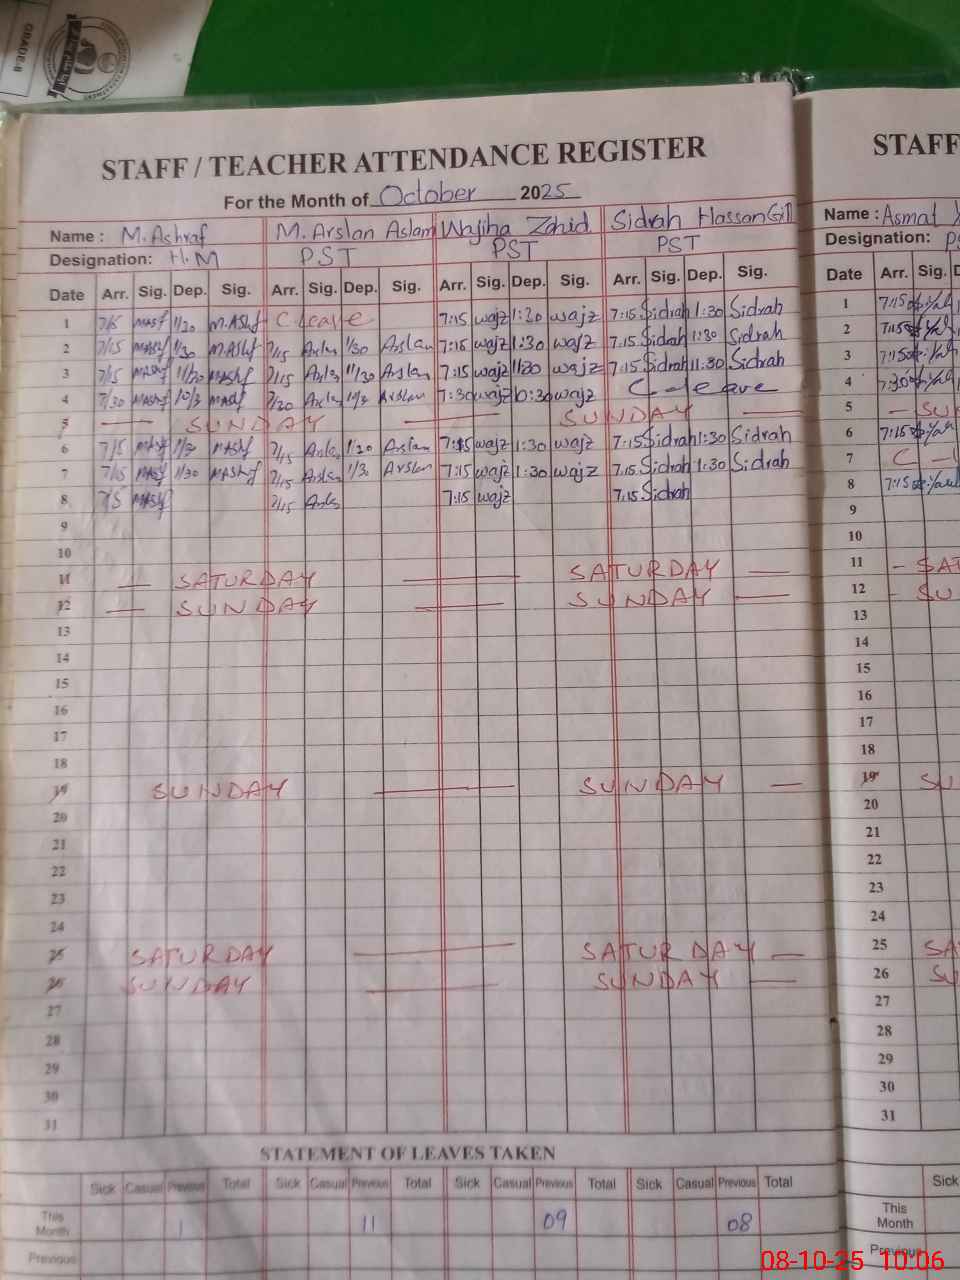 GRADE-8
STAFF / TEACHER ATTENDANCE REGISTER
STAFF
For the Month of October 2025
Name : M. Ashraf M. Arslan Aslam Wajiha Zahid Sidrah Hassan Gill
Name : Asmat
Designation: H.M PST PST PST
Designation:
Date Arr. Sig. Dep. Sig. Arr. Sig. Dep. Sig. Arr. Sig. Dep. Sig. Arr. Sig. Dep. Sig.
Date Arr. Sig.
1 C leave 7:15 wajz 1:30 wajz 7:15 Sidrah 1:30 Sidrah
1 7:15
2 7/15 1/30 M.Ashf 7/15 1/30 Arslan 7:15 wajz 1:30 wajz 7:15 Sidrah 1:30 Sidrah
2 7:15
3 7/15 Mashf 7/15 11/30 Arslan 7:15 wajz wajz 7:15 Sidrah 11:30 Sidrah
3 7:15
4 7/30 Arslan 7:30 wajz 10:30 wajz C-leave
4 7:30
5 SUNDAY SUNDAY
5
6 7/15 Mashf 7/15 Arslan 7:15 wajz 1:30 wajz 7:15 Sidrah 1:30 Sidrah
6 7:15
7 7/15 1/30 Mashf 7/15 Arslan 7:15 wajz 1:30 wajz 7:15 Sidrah 1:30 Sidrah
7 C
8 7/15 7:15 wajz 7:15 Sidrah
8 7:15
9
9
10
10
11 SATURDAY SATURDAY
11
12 SUNDAY SUNDAY
12
13
13
14
14
15
15
16
16
17
17
18
18
19 SUNDAY SUNDAY
19
20
20
21
21
22
22
23
23
24
24
25 SATURDAY SATURDAY
25
26 SUNDAY SUNDAY
26
27
27
28
28
29
29
30
30
31
31
STATEMENT OF LEAVES TAKEN
Sick Casual Previous Total Sick Casual Previous Total Sick Casual Previous Total Sick Casual Previous Total
Sick
This Month 1 11 09 08
This Month
Previous
Previous
08-10-25 10:06